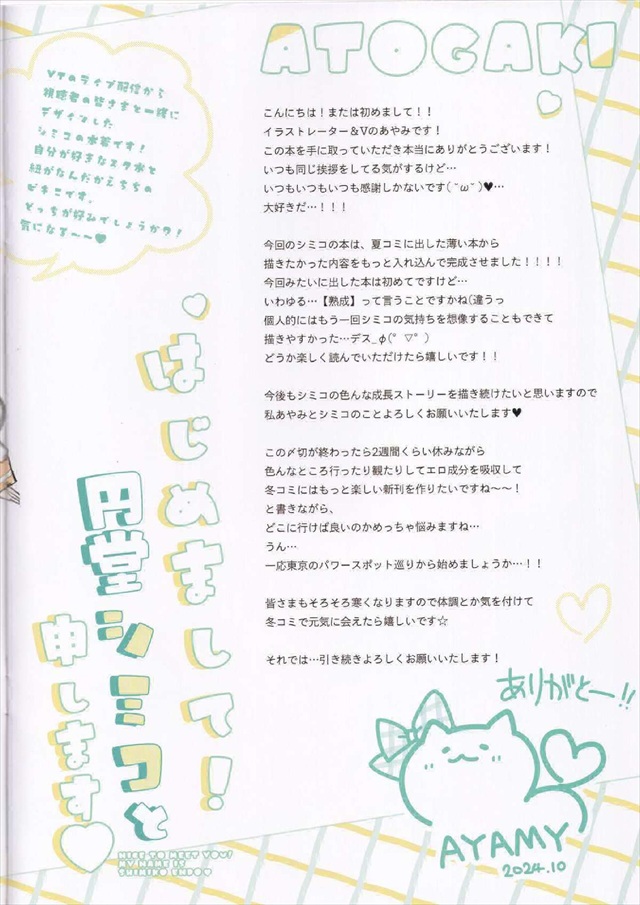 ATOGAKI
VTのライブ配信から
視聴者の皆さまと一緒に
デザインした
シミコの水着です!
自分が好きなスク水と
紐がなんだかえちちの
ビキニです。
どっちが好みでしょうか?!
気になる〜〜♥
こんにちは!または初めまして!!
イラストレーター&Vのあやみです!
この本を手に取っていただき本当にありがとうございます!
いつも同じ挨拶をしてる気がするけど…
いつもいつもいつも感謝しかないです(˘ω˘)♥…
大好きだ…!!!
今回のシミコの本は、夏コミに出した薄い本から
描きたかった内容をもっと入れ込んで完成させました!!!!
今回みたいに出した本は初めてですけど…
いわゆる…【熟成】って言うことですかね(違うっ
個人的にはもう一回シミコの気持ちを想像することもできて
描きやすかった…デス_φ(ﾟ▽ﾟ)
どうか楽しく読んでいただけたら嬉しいです!!
今後もシミコの色んな成長ストーリーを描き続けたいと思いますので
私あやみとシミコのことよろしくお願いいたします♥
この〆切が終わったら2週間くらい休みながら
色んなところ行ったり観たりしてエロ成分を吸収して
冬コミにはもっと楽しい新刊を作りたいですね〜〜!
と書きながら、
どこに行けば良いのかめっちゃ悩みますね…
うん…
一応東京のパワースポット巡りから始めましょうか…!!
皆さまもそろそろ寒くなりますので体調とか気を付けて
冬コミで元気に会えたら嬉しいです☆
それでは…引き続きよろしくお願いいたします!
はじめまして!
円堂シミコと
申します♥
NICE TO MEET YOU!
MY NAME IS
SHIMIKO ENDO♥
ありがとー!!
AYAMY
2024.10